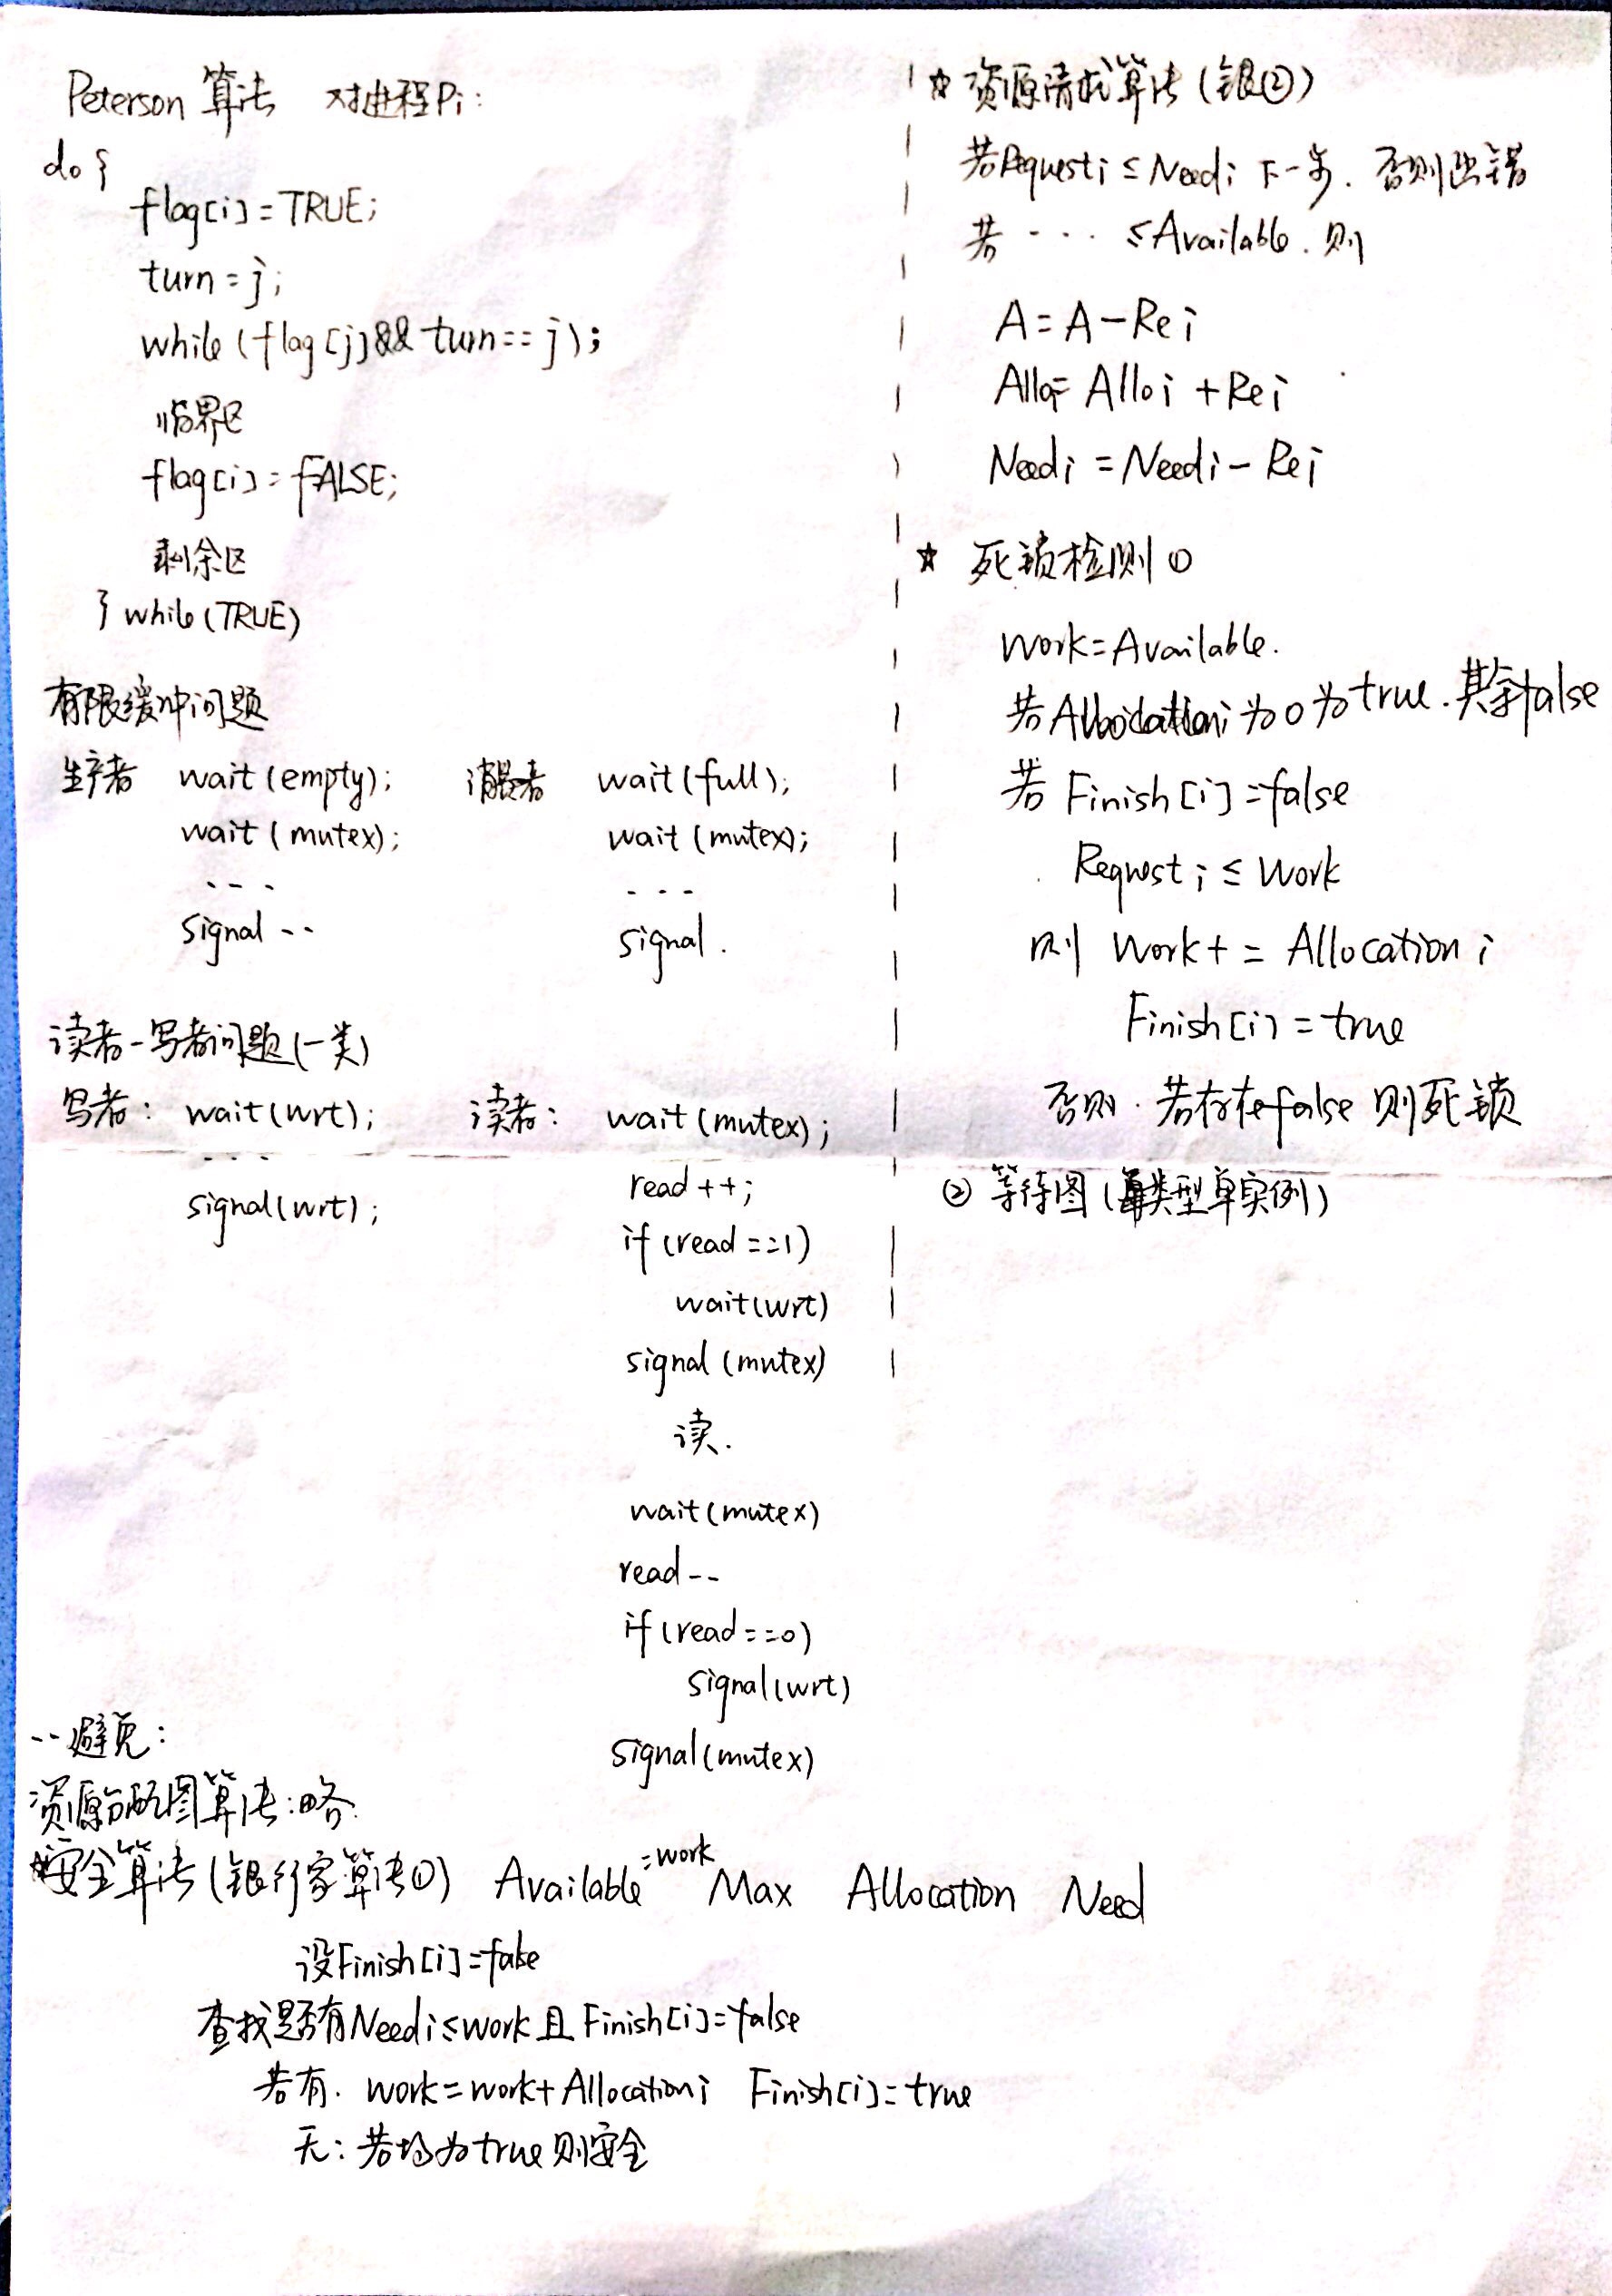 Peterson 算法 对进程Pi:
do {
flag[i]=TRUE;
turn=j;
while(flag[j]&&turn==j);
临界区
flag[i]=FALSE;
剩余区
} while(TRUE)
有限缓冲问题
生产者 wait(empty); 消费者 wait(full);
wait(mutex); wait(mutex);
... ...
signal -- signal.
读者-写者问题(一类)
写者: wait(wrt); 读者: wait(mutex);
... read++;
signal(wrt); if(read==1)
wait(wrt)
signal(mutex)
读.
wait(mutex)
read--
if(read==0)
signal(wrt)
signal(mutex)
--避免:
资源分配图算法:略.
*安全算法(银行家算法①) Available=work Max Allocation Need
设Finish[i]=false
查找是否有Needi≤work且Finish[i]=false
若有. work=work+Allocationi Finish[i]=true
无: 若均为true则安全
☆ 资源请求算法(银②)
若Requesti≤Needi 下一步. 否则出错
若 ···· ≤Available. 则
A=A-Rei
Alloi=Alloi+Rei
Needi=Needi-Rei
☆ 死锁检测①
Work=Available.
若Allocationi为0为true.其余false
若 Finish[i]=false
Requesti≤Work
则 Work+=Allocationi
Finish[i]=true
否则. 若存在false则死锁
② 等待图(每类型单实例)